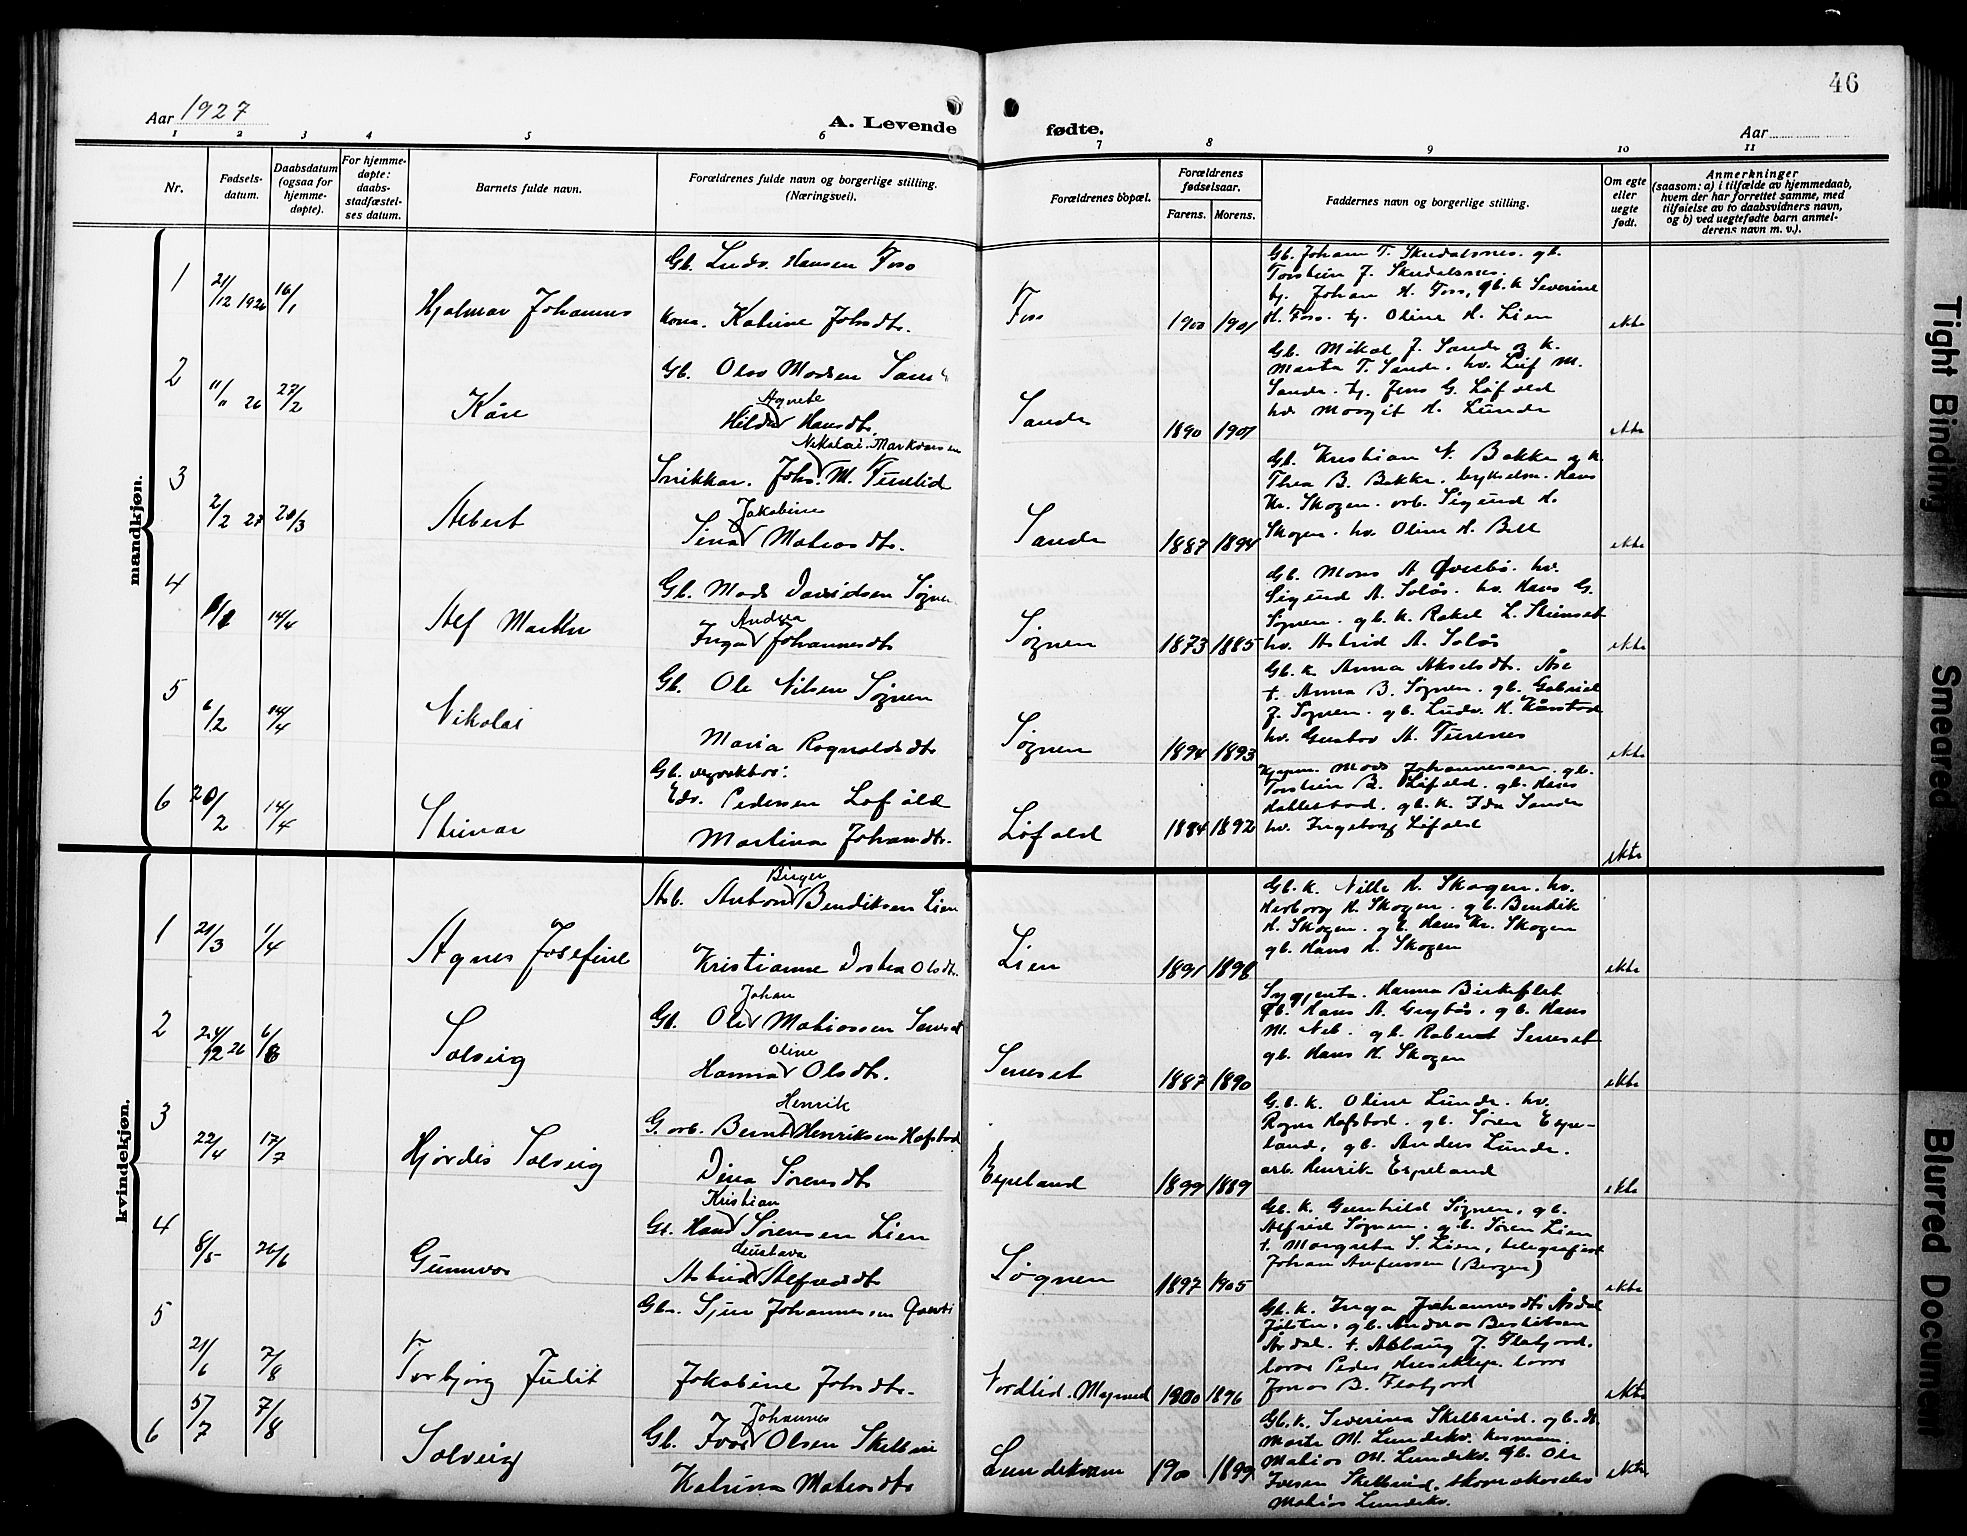 46
Aar 1927
A. Levende
fødte.
Aar
1 2 3 4 5 6 7 8 9 10 11
Nr.
Fødsels-
datum.
Daabsdatum
(ogsaa for
hjemme-
døpte).
For hjemme-
døpte:
daabs-
stadfæstel-
ses datum.
Barnets fulde navn.
Forældrenes fulde navn og borgerlige stilling.
(Næringsvei).
Forældrenes bopæl.
Forældrenes
fødselsaar.
Farens. Morens.
Faddernes navn og borgerlige stilling.
Om egte
eller
uegte
født.
Anmerkninger
(saasom: a) i tilfælde av hjemmedaab,
hvem der har forrettet samme, med
tilføielse av to daabsvidners navn,
og b) ved uegtefødte barn anmel-
derens navn m. v.).
mandkjøn.
1 21/12 1926 16/1 Hjalmar Johannes
Gb. Ludv. Hansen Foss
kona. Katrine Johsdtr.
Foss 1900 1901
Gb. Johan T. Skudalsnes. gb.
Torstein J. Skudalsnes.
tj. Johan H. Foss, gb.k. Severine
H. Foss. tj. Oline H. Lien
ekte
2 11/11 26 27/2 Kåre
Gb. Olav Madsen Sande
Agnete
Hilda Hansdtr.
Sande 1890 1901
Gb. Mikal J. Sande og k.
Marta T. Sande. hv. Leif M.
Sande. tj. Jens G. Løfald
hv. Margit H. Lunde
ekte
3 2/2 27 20/3 Albert
Nikolai Markussen
Snikkar. Johs. M. Tuselid
Jakobine
Sina Matiasdtr.
Sande 1887 1894
Gb. Kristian N. Bakke og k.
Thea B. Bakke. bykselm. Hans
Kr. Skogen. arb. Sigund H.
Skogen. hv. Oline H. Bell
ekte
4 14/4 Alf Martin
Gb. Mads Davidsen Søgnen
Andrea
Inga Johannesdtr
Søgnen 1873 1885
Gb. Mons A Øvrebø. hv.
Sigund A. Solås. hv. Hans G.
Søgnen. gb.k. Rakel L.
hv. Astrid A. Solås
ekte
5 6/2 14/4 Nikolai
Gb. Ole Nilsen Søgnen
Maria Ragnaldsdtr
Søgnen 1894 1893
Gb.k. Anna Akselsdtr. Åse
t. Anna B. Søgnen. gb. Gabriel
J. Søgnen. gb. Ludv. H. Kårstad
hv. Gustav A. Turenes
ekte
6 20/2 14/4 Steinar
Gb. vegvaktar:
Edv. Pedersen Løfald
Martina Johandtr.
Løfald 1884 1892
Kjøpm. Mads Johannessen. gb.
Torstein B. Løfald. gb. Hans
Hallestad. gb.k. Ida Sande
hv. Ingeborg Løfald
ekte
kvindekjøn.
1 21/3 1/4 Agnes Josefine
Birger
Arb. Anton Bendiksen Lien
Kristianne Dortea Olsdtr.
Lien 1891 1898
Gb.k. Nille H. Skogen. hv.
Herborg H. Skogen. gb. Bendik
H. Skogen. gb. Hans Kr. Skogen
gb. Hans H. Skogen
ekte
2 24/12 26 6/6 Solveig
Johan
Gb. Ole Matiassen Seneset
Oline
Hanna Olsdtr.
Seneset 1887 1890
Sygjenta. Hanna Birkeflet
Gb. Hans A. Grytås. gb. Hans
M. Neb. gb. Robert Seneset
gb. Hans H. Skogen
ekte
3 22/4 17/7 Hjørdis Solveig
Henrik
G. arb. Bernt Henriksen Hafstad
Dina Sørensdtr
Espeland 1899 1889
G.b.k. Oline Lunde. hv.
Ragna Hafstad. gb. Søren Espe-
land, gb. Anders Lunde.
arb. Henrik Espeland
ekte
4 8/5 26/6 Gunnvor
Kristian
Gb. Hans Sørensen Lien
Gustava
Astrid Alfredsdtr
Søgnen 1897 1905
Gb.k. Gunhild Søgnen, gb.
Alfred Søgnen. gb. Søren Lien
t. Margreta S. Lien, telegrafist
Johan Anfinssen (Bergen)
ekte
5 21/6 7/8 Torbjørg Julit
Gbr. Sjur Johannessen
Jakobine Johsdtr.
Nordlid. Myrmel 1900 1896
Gb.k. Inga Johannesdtr Årdal
Jølster, gb. Andreas Bertelsen
Årdal. t. Aslaug J. Flatjord.
Jonas B. Flatjord
ekte
6 5/7 7/8 Solveig
Johannes
Gb. Ivar Olsen Skilbrei
Katrina Matiasdtr
Lundekvam 1900 1899
Gb.k. Severina Skilbreid. gb.dr.
Marta M. Lundekv. kusman.
Matias M. Lundekv. Gb. Ole
Iversen Skilbreid. skomakar
Matias Lundekv.
ekte
Tight Binding
Smeared
Blurred Document